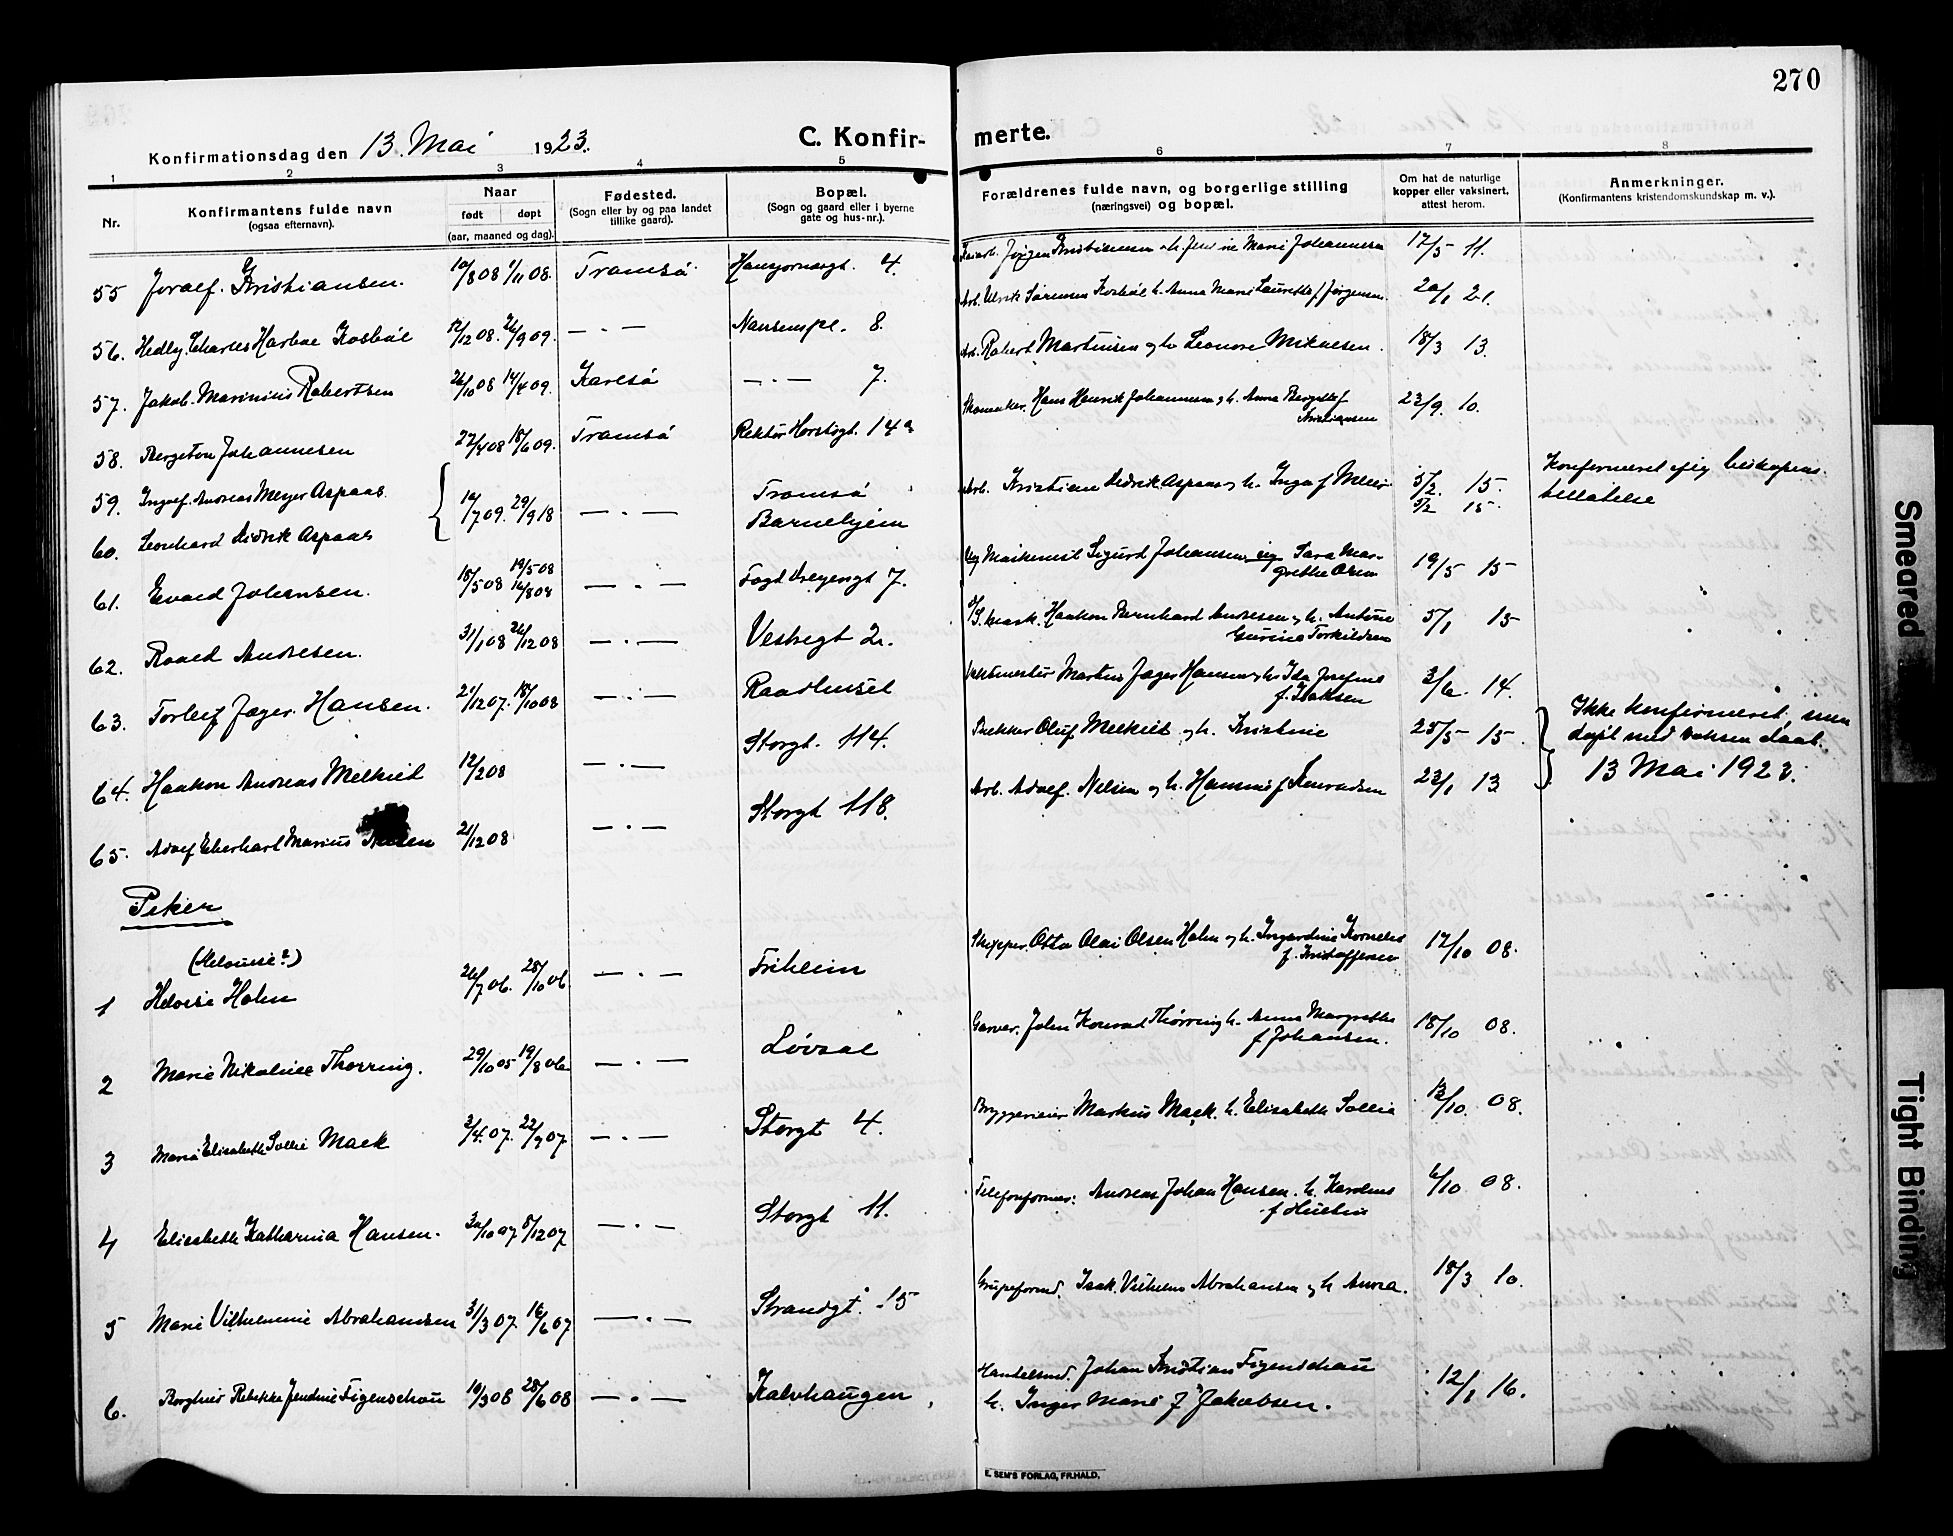 270
Konfirmationsdag den 13. Mai 1923.
C. Konfirmerte.
1 2 3 4 5 6 7 8
Nr.
Konfirmantens fulde navn
(ogsaa efternavn).
Naar
født døpt
(aar, maaned og dag).
Fødested.
(Sogn eller by og paa landet
tillike gaard).
Bopæl.
(Sogn og gaard eller i byerne
gate og hus-nr.).
Forældrenes fulde navn, og borgerlige stilling
(næringsvei) og bopæl.
Om hat de naturlige
kopper eller vaksinert,
attest herom.
Anmerkninger.
(Konfirmantens kristendomskundskap m. v.).
55 Kristiansen. 10/8 08 1/11 08. Tromsø 4. Jørgen Kristiansen Marie Johannesen 17/5 11.
56. Hedly Charles Harboe 12/12 08. 26/9 09. —.— Nansenspl. 8. Arb. Ulrik Sørensen h. Anna Marie Laurette f. Jørgensen. 20/1 21.
57. Jakob Marinius Robertsen 26/10 08 14/4 09. Karlsø —.— 7. Arb. Robert Martinsen og h. Leonore Mikalsen. 18/3 13.
58. Bergeton Johannesen 27/4 08 18/6 09. Tromsø Rektor Horstsgt. 14a Skomaker. Hans Henrik Johannesen og h. Anna Bergitte f.
Kristiansen 23/9. 10.
59. Ingolf Andreas Meyer Aspaas 10/7 09. 29/9 18 —.— Tromsø
Barnehjem Arb. Kristian Didrik Aspaas og h. Inga f. Meier 5/2. 15. Konfirmeret efter biskopens
tillatelse
60. Leonhard Didrik Aspaas 5/2 15.
61. Evald Johansen. 18/5 08 19/5 08
16/8 08 —.— Fogd Dreyersgt 7. Ug. Maskinist Sigurd Johansen og Sara Mar-
grethe Olsen 19/5 15
62. Roald Andresen. 31/1 08 26/12 08 —.— Vestregt 2. Haakon Bernhard Andresen og h. Antonie
Gurine Torkildsen 5/1 15
63. Torleif Jæger Hansen. 21/12 07. 18/10 08 —.— Raadhuset Martin Jæger Hansen og h. Ida Josefine
f. Isaksen 3/6. 14.
64. Haakon Andreas Melkild 12/2 08 —.— Storgt. 114. Oluf Melkild og h. Kristine 25/5 15. Ikke konfirmeret, men
døpt med voksen daab
13 Mai 1923.
65. Adolf Eberhart Marius Nilsen 21/12 08 —.— Storgt 118. Arb. Adolf Nilsen og h. Hansine f. Konradsen 23/1 13
Piker
(Helouise?)
1 Heloise Holm 26/7 06. 28/10 06. —.— Friheim Skipper. Otto Olai Olsen Holm og h. Ingardine Kornelie
f. Kristoffersen 17/10 08.
2 Marie Nikoline Thorring. 29/10 05 19/8 06 —.— Løvdal Garver. John Konrad Thørring h. Anna Margrethe
f. Johansen. 18/10 08.
3 Marie Elisabeth Sollie Mack 2/4. 07. 22/9 07 —.— Storgt 4. Bryggerieier Markus Mack. h. Elisabeth Sollie 12/10 08.
4 Elisabeth Katharina Hansen. 30/10 07 8/12 07 —.— Storgt 11. Andreas Johan Hansen. h. Karoline
f. 6/10 08.
5 Marie Vilhelmine Abrahamsen 31/3 07. 16/6 07 —.— Strandgt. 15 Isak Vilhelm Abrahamsen og h. Anna. 18/3 10.
6. Borghild Rebekka Jendine Figenschau 10/3 08 28/6 08 —.— Kalvhaugen Handelsmd. Johan Kristian Figenschau
h. Inger Marie f. Jakobsen. 12/1 16.
E. SEM'S FORLAG, FR.HALD.
Smeared
Tight Binding